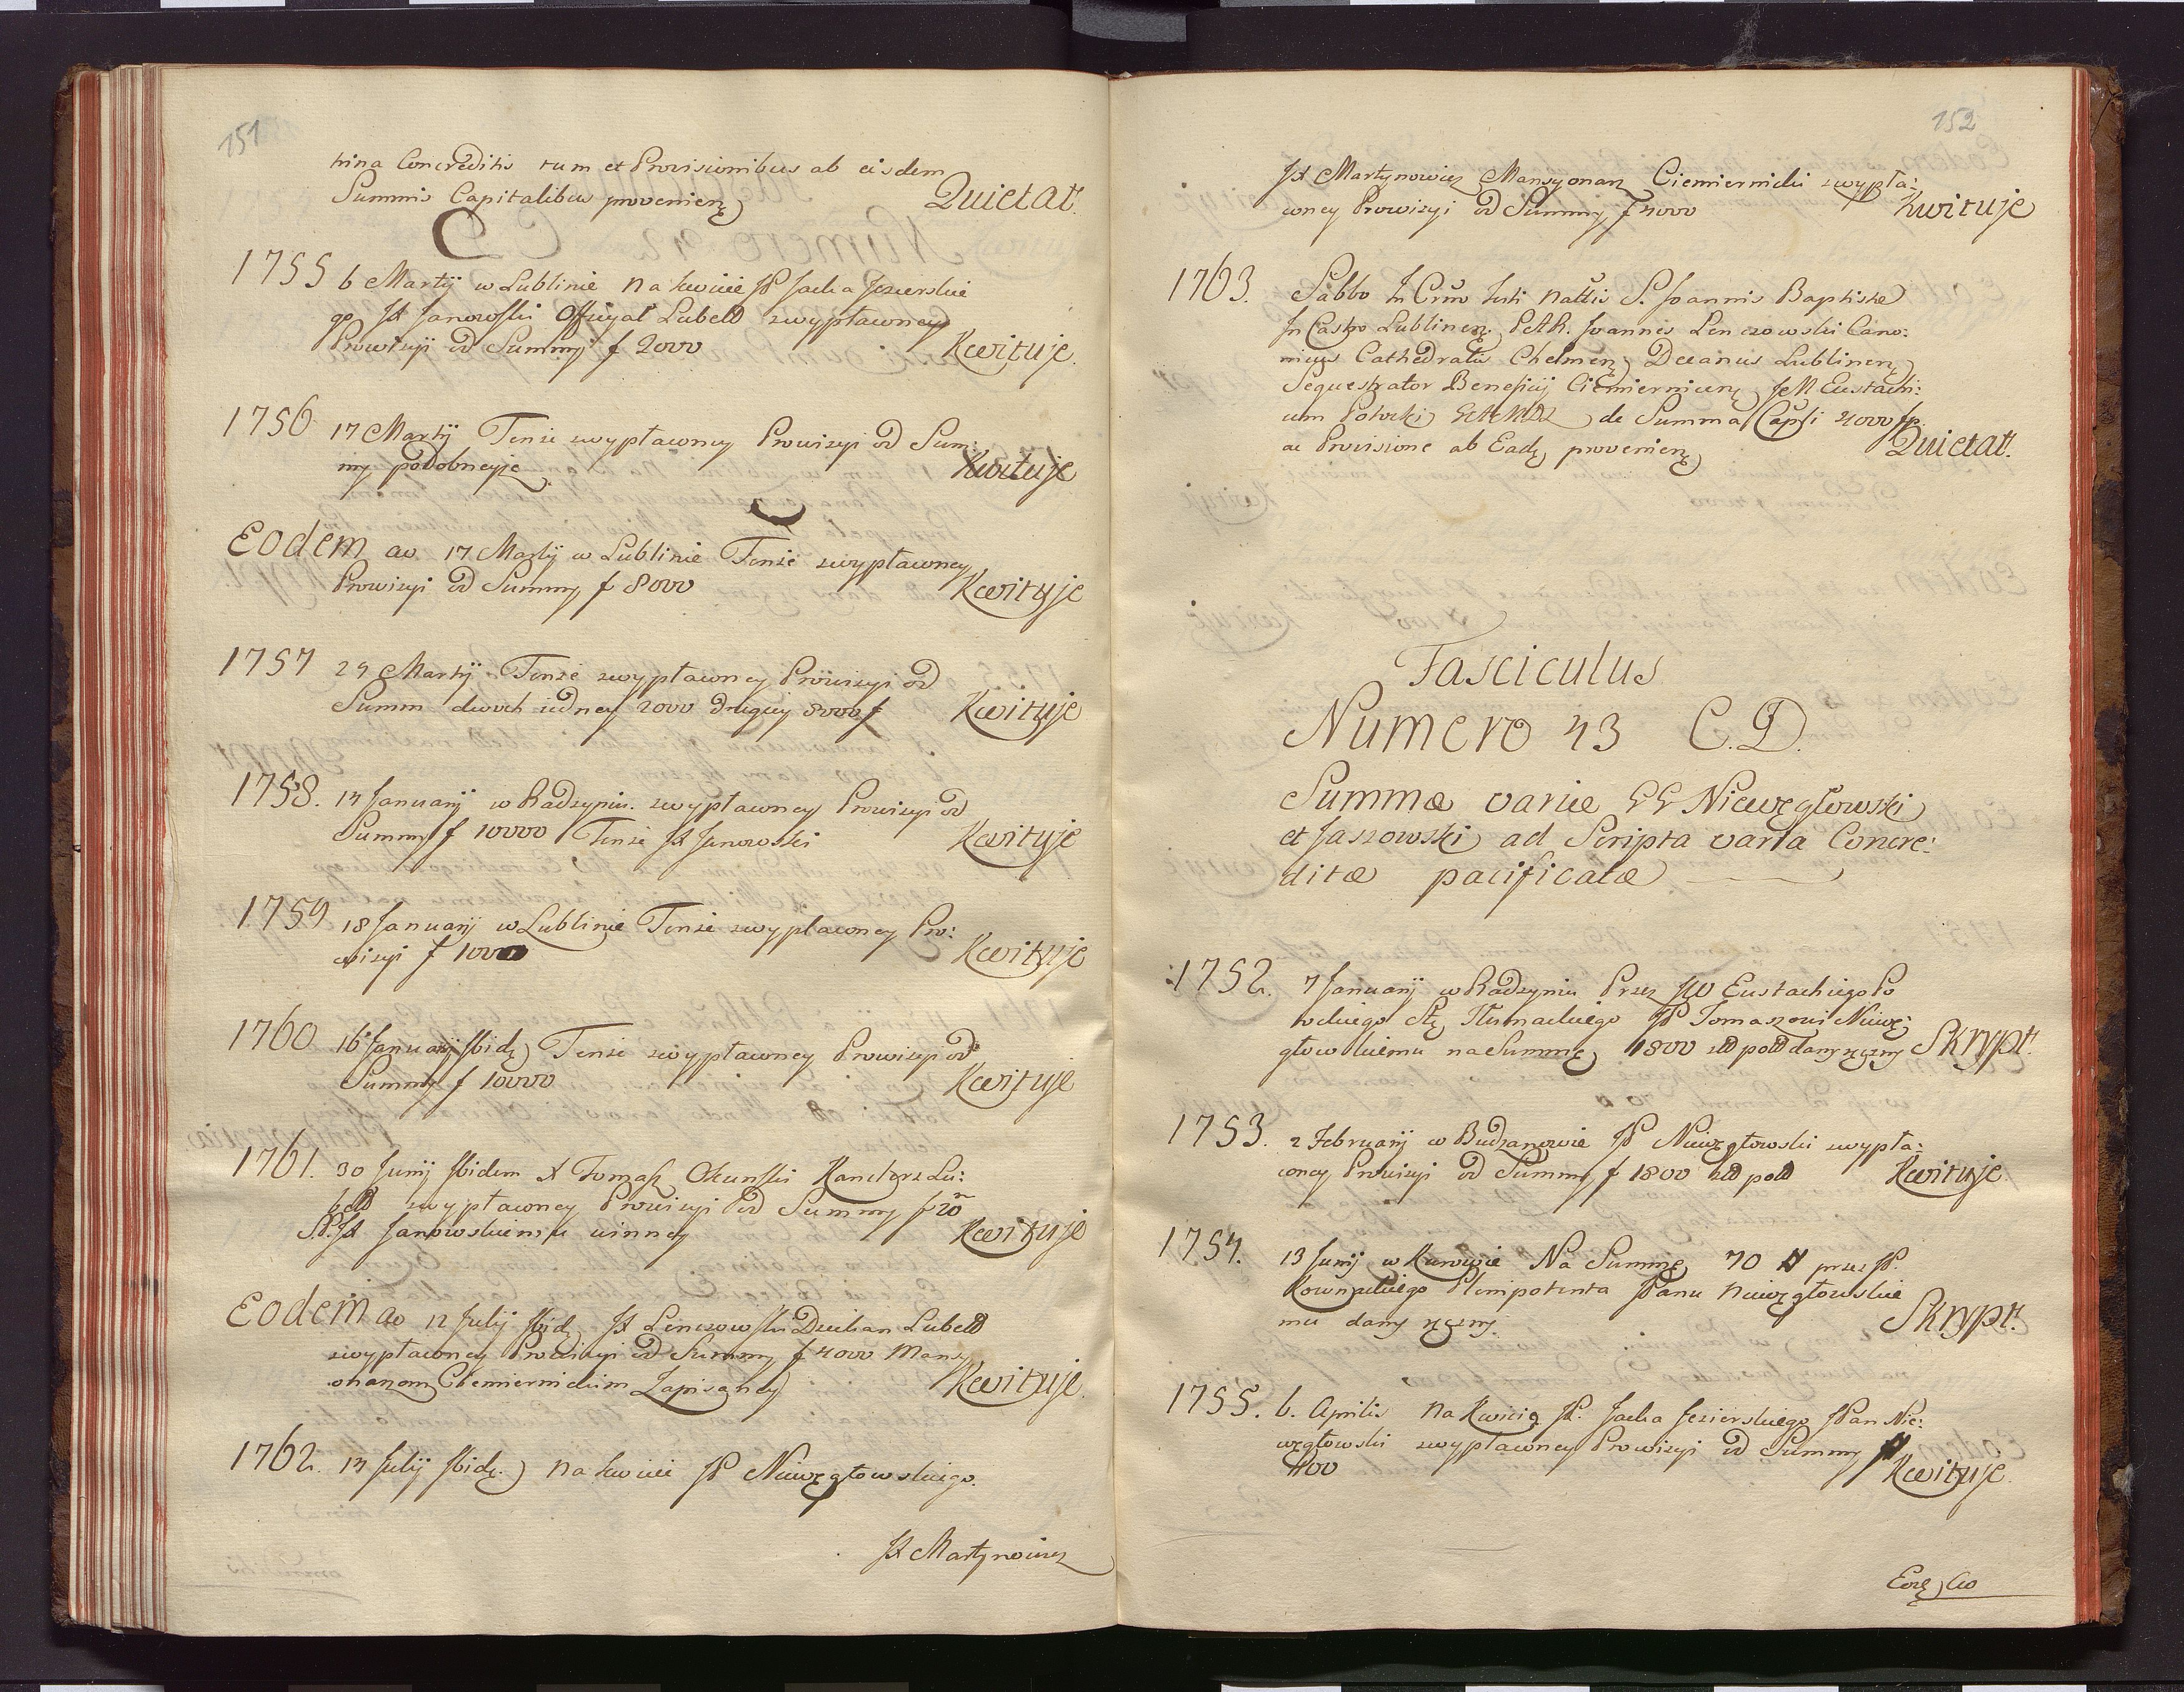 151
trina Concreditis tum et Provisionibus ab eisdem
Summis Capitalibus provenien
Quietat.
1755 6 Martij w Lublinie na kwicie JP Jacka Jezierskie
go JX Janowski Officyał Lubeld zwypławney
Prowizyi od Summy f 2000 Kwituje.
1756 17 Martij Tenże zwypławney Prowizyi od Sum:
my podobneyże Kwituje
Eodem ao 17 Martij w Lublinie Tenże zwypławney
Prowizyi od Summy f 8000 Kwituje
1757 24 Martij Tenże zwypławney Prowizyi od
Summ dwoch iedney 2000 drugiey 8000 f Kwituje
1758. 14 Januarij w Radzyniu. zwypławney Prowizyi od
Summy f 10000 Tenże JX Janowski Kwituje
1759 18 Januarij w Lublinie Tenże zwypławney Pro:
wizyi f 1000 Kwituje
1760 16 Januarij Ibid Tenże zwypławney Prowizyi od
Summy f 10000 Kwituje
1761. 30 Junij Ibidem X Tomasz Okunski Kanclerz Lu:
beld zwypławney Prowizyi od Summy
S.P. JX Janowskiemu winney Kwituje
Eodem ao 12 Julij Ibid JX Lenczowski Dziekan Lubeld
zwypławney Prowizyi od Summy f 4000 Mansy
onarzom Ciemiernickim Zapisaney Kwituje.
1762. 14 Julij Ibid. na kwicie JP Niewęgłowskiego.
JX Martynowicz
152
JX Martynowicz Mansyonarz Ciemiernicki zwypła:
wney Prowizyi od Summy f 4000 Kwituje
1763. Sabbo In Crno Festi Nattis S. Joannis Baptistæ
In Castro Lublinen. Joannes Lenczowski Cano:
nicus Cathedralis Chelmen Decanus Lublinen
Sequestrator Beneficij Ciemiernicen Eustachi:
um Potocki de Summa Capli 4000 fp.
ac Provisione ab Eadę provenien Quietat.
Fasciculus
Numero 43 C.D.
Summæ variæ GG Niewęgłowski
et Jaszowski ad Scripta varia Concre:
ditæ pacificatæ
1752. 7 Januarij w Radzyniu Przez JW Eustachiego Po
tockiego Stę Tłumackiego JP Tomaszowi Niewę:
głowskiemu na Summę 1800 złł pold dany ręczny Skrypt.
1753. 2 Februarij w Budzanowie JP Niewęgłowski zwypła:
wney Prowizyi od Summy f 1800 złł pold Kwituje.
1754. 13 Junij w Kurowie Na Summę 70 # przez JP.
Kownackiego Plenipotenta JPanu Niewęgłowskie
mu dany ręczny. Skrypt.
1755. 6. Aprilis na Kwicie JP. Jacka Jezierskiego JPan Nie:
węgłowski zwypławney Prowizyi od Summy #
400 Kwituje.
Eod Ao